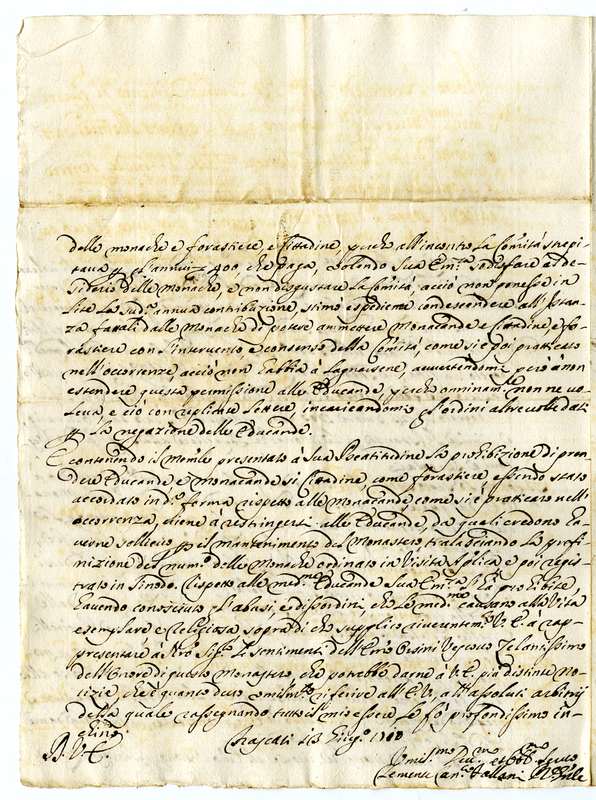 delle monache e forastiere, e cittadine, perche all'incontro La Comità strepi-
tava p gl'annui 400, che paga, volendo Sua Em.ª sodisfare al de-
siderio delle Monache, e non disgustare La Comità, acciò non ponesse in
lite La sud.ª annua contribuzione, stimò espediente condescendere all'Istan-
za fatali dalle Monache di potere ammettere Monacande e Cittadine e fo-
rastiere con l'intervento e consenso della Comità, come si è poi praticato
nell'occorrenze, acciò non habbia à Lagnarsene, avvertendomi però à non
estendere questa permissione alle Educande, perche omninam.e non ne vo-
leva, e ciò con replicate Lettere, incaricandomi gl'ordini altre volte dati
p La negazione delle Educande.
E contenendo il Mem.le presentato à Sua Beatitudine La proibizione di pren-
dere Educande e Monacande si Cittadine come forastiere, essendo stato
accordato in d.ª forma rispetto alle Monacande come si è praticato nell'
occorrenza, viene à restringersi alle Educande, da quali credono ha-
verne sollievo p il mantenimento del Monastero tralasciando La prefi-
nizione del num.o delle Monache ordinato in Visita Aplica e poi regis-
trato in Sinodo. Rispetto alle med.me Educande Sua Em.za li hà prohibite,
havendo conosciuto gl'abusi, e disordini, che le med.me causano alla Vita
esemplare e religiosa, sopra di che supplico riverentem.e V. E. a rap-
presentare à Nro Sig.re Li sentimenti dell' Orsini Vescovo Zelantissimo
dell'Onore di questo Monastero, che potrebbe darne à V. E. più distinte No-
tizie, che è quanto devo riferire all'E. V., a gl'assoluti arbitrij
della quale rassegnando tutto il mio essere Le fò profondissimo in-
chino.
Frascati 13
D. V. E.
Umil.mo Dev.mo et Obb.mo Servo
Clemente Can.co